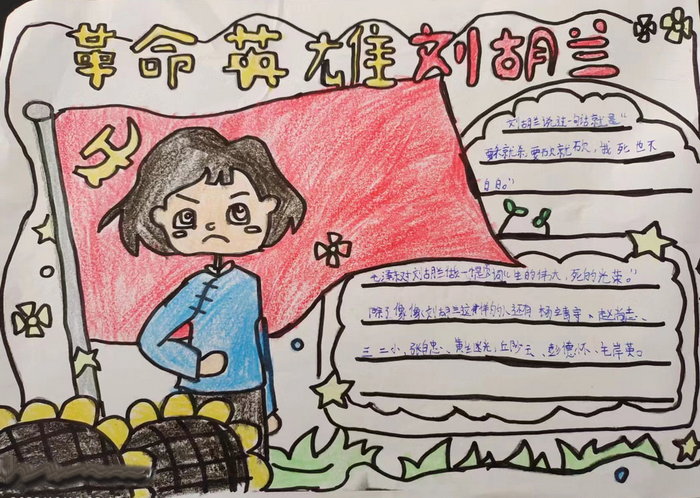 革命英雄刘胡兰
刘胡兰说过一句话就是“
要杀就杀,要砍就砍,我死也不
自白。”
毛泽东对刘胡兰做一个提词“生的伟大,死的光荣。”
除了像 刘胡兰这 的人还有 杨靖宇、赵尚志、
王二小、张自忠、黄继光、丘少云、彭德怀、毛岸英。